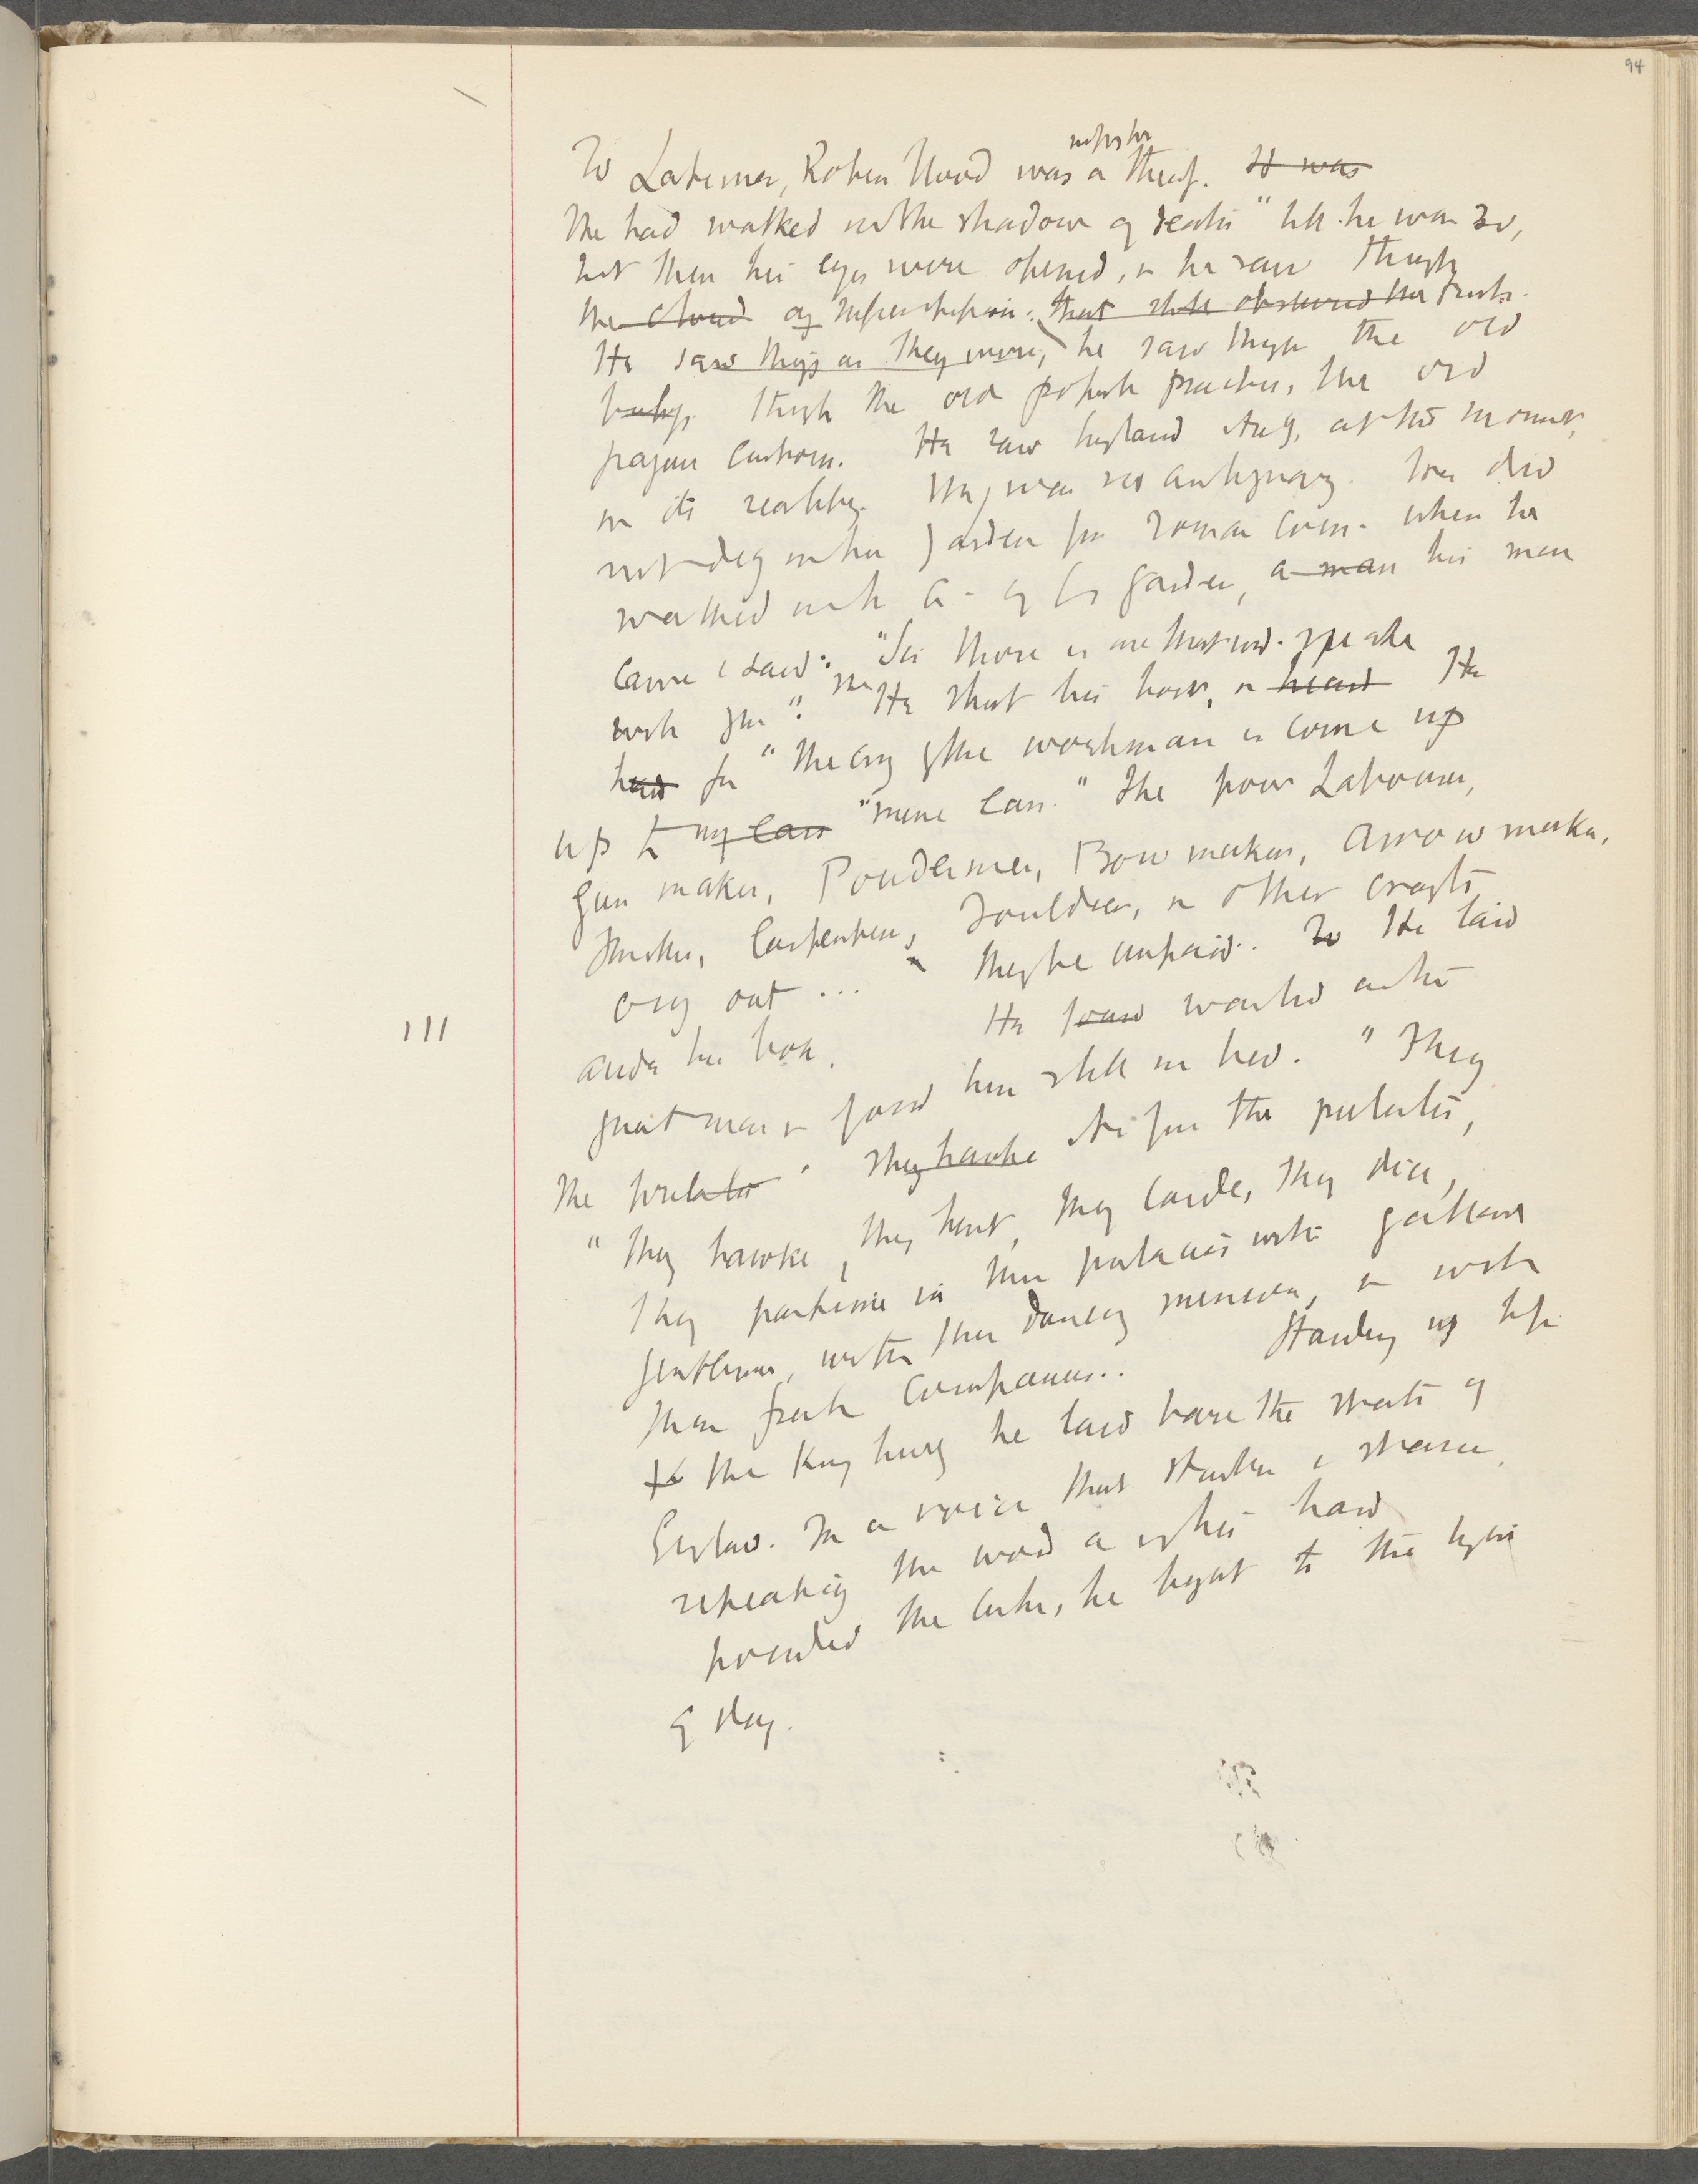 94
To Latimer, Robin Hood was a thief. It was
He had walked in the shadow of death" till he was 30,
but then his eyes were opened, & he saw through
the cloud of superstition: that still obscured the truth.
He saw things as they were, he saw through the old
through the old popish practices, the old
pagan customs. He saw England itself, at this moment,
in its reality. He was no antiquary. He did
not dig in his garden for Roman coins. When he
walked in his garden, a man his man
came & said: "Sir there is one that wd. speake
with you". He shut his book, & heard He
heard for "the cry of the workman is come up
up to my ears "mine ears." The poor Labourer,
Gun maker, Powdermen, Bow makers, Arrow maker,
Smiths, Carpenters, Souldiers, & other crafts
cry out ... they be unpaid. So He laid
aside his book. He found waited on the
great man & found him still in bed. "They
the prelates. They hawke As for the prelates,
"They hawke, they hunt, they carde, they dice,
They pastime in their prelacies with gallant
gentlemen, with their dancing minions, & with
their fresh companions.. Standing up before
the King he laid bare the state of
England. In a voice that
repeating the word as if his hand
pounded the cushion, he brought to the light
of day.
111